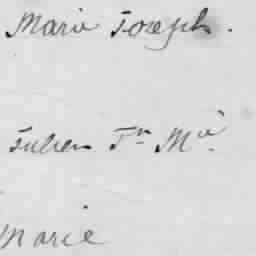 Marie Joseph.
Julien Fr. Mie.
Marie